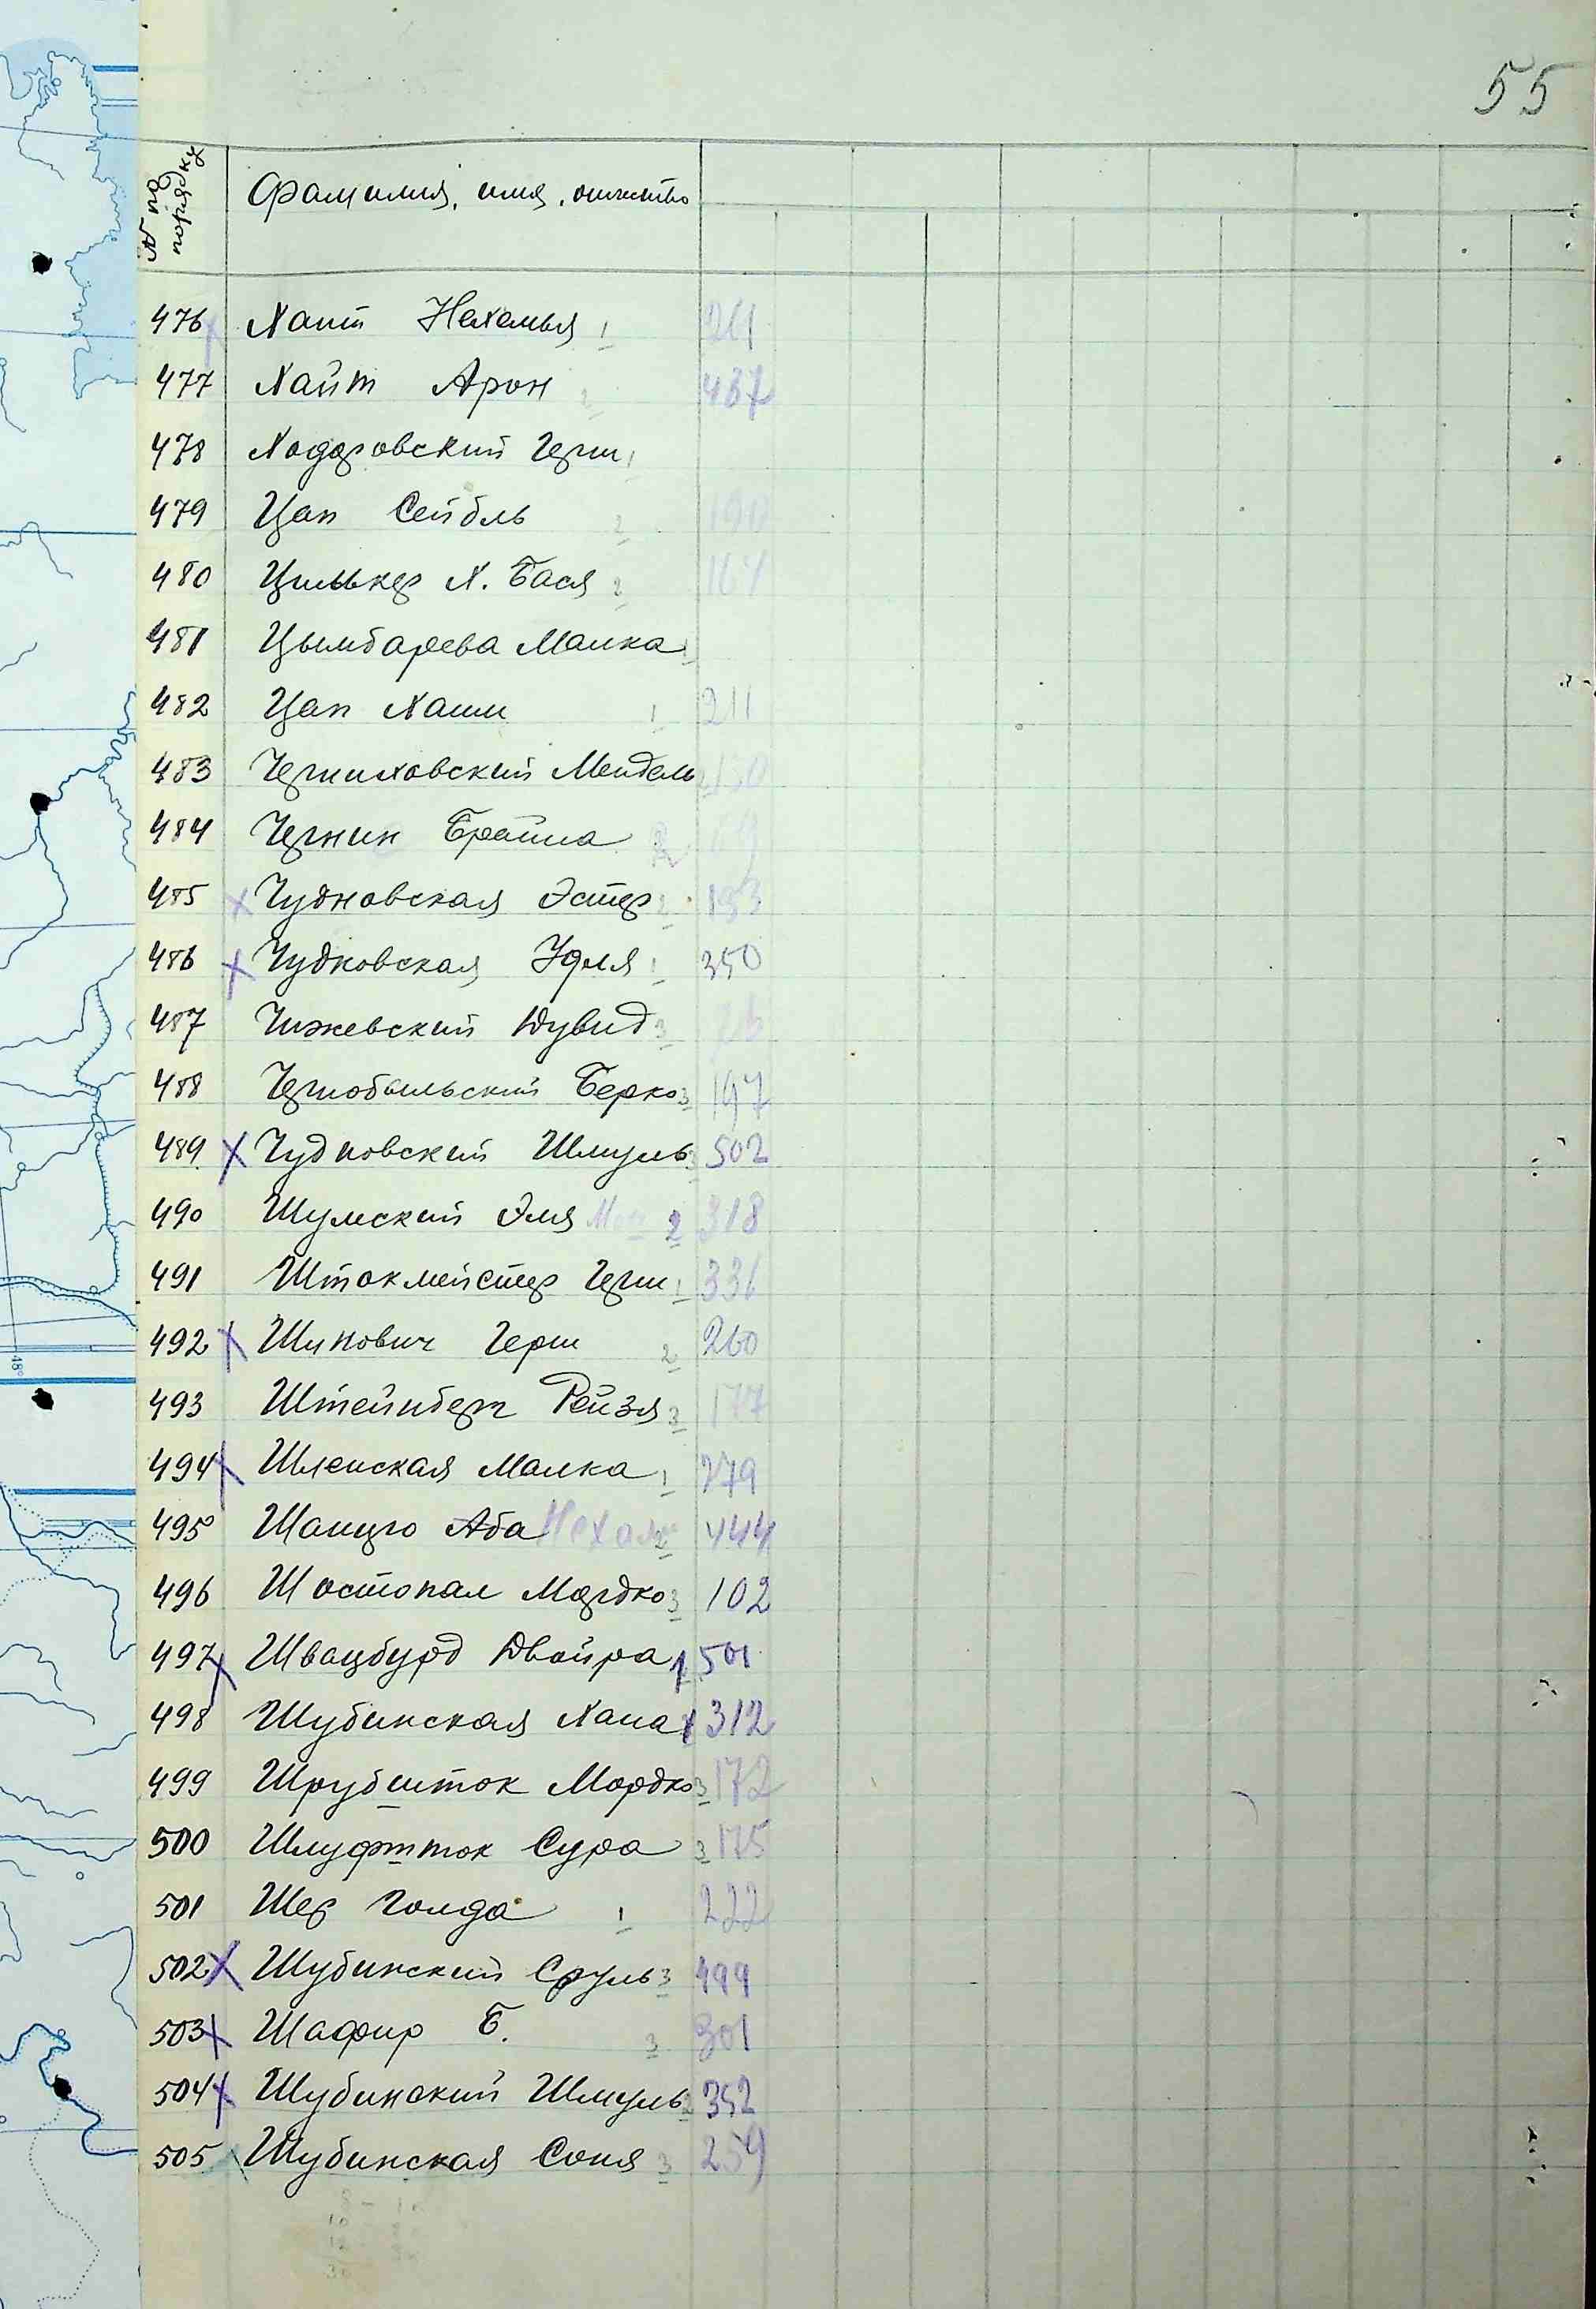 55
№ по порядку Фамилия, имя, отчество
476 Хаит Нехемья 1 261
477 Хайт Арон 2 437
478 Ходоровский Герш 1
479 Цап Сейбль 2
480 Цилькер Х. Бася 2 164
481 Цымбарева Малка 1
482 Цап Хаим 1 211
483 Черниховский Мендель 2
484 Чернин Брайна
485 х Чудновская Эстер 2 193
486 х Чудновская Удля 1 350
487 Чижевский Дувид 3
488 Чернобыльский Берко 3 197
489 х Чудновский Шмуль 3 502
490 Шумский Эля 2 318
491 Штокмейстер Герш 1 336
492 х Шипович Герш 2 260
493 Штейнберг Рейзя 3 177
494 х Шленская Малка 1 279
495 Шапиро Аба 2 444
496 Шостопал Мордко 3 102
497 х Шварцбурд Двойра 1 501
498 Шубинская Хана 1 312
499 Шрубшток Мордко 3 172
500 Шлуфтток Сура 3 175
501 Шер Голда 1 222
502 х Шубинский Сруль 3 499
503 х Шафир Б. 3 301
504 х Шубинский Шмуль 2 352
505 Шубинская Соня 3 259
48°